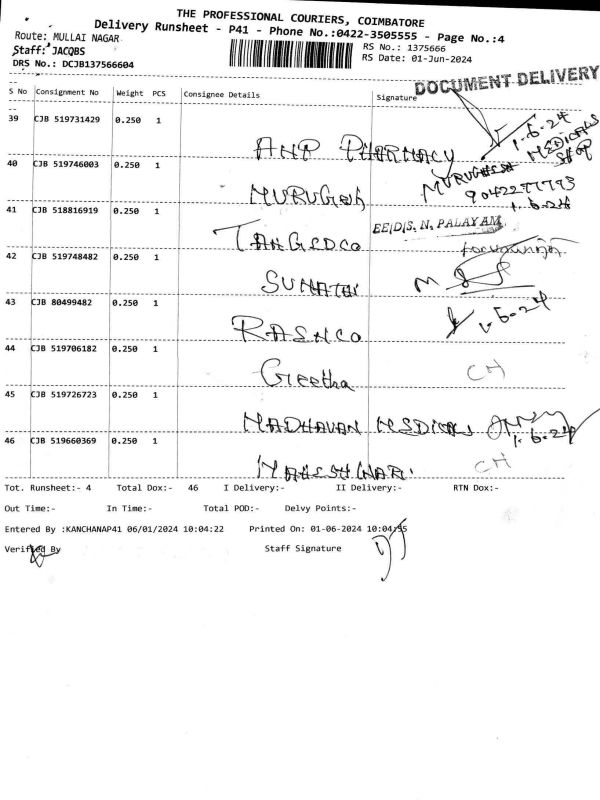 THE PROFESSIONAL COURIERS, COIMBATORE
Delivery Runsheet - P41 - Phone No.:0422-3505555 - Page No.:4
Route: MULLAI NAGAR
RS No.: 1375666
Staff: JACOBS
RS Date: 01-Jun-2024
DRS No.: DCJB137566604
DOCUMENT DELIVERY
S No Consignment No Weight PCS Consignee Details Signature
39 CJB 519731429 0.250 1 PHARMACY 1-6-24
40 CJB 519746003 0.250 1 MURUGESH MURUGESH MEDICALS SHOP
1.6.24
41 CJB 518816919 0.250 1 TANGEDCO EE/D/S, N. PALAYAM
42 CJB 519748482 0.250 1
43 CJB 80499482 0.250 1 1-6-24
44 CJB 519706182 0.250 1 Geetha CH
45 CJB 519726723 0.250 1 MADHAVAN MEDICALS 1.6.24
46 CJB 519660369 0.250 1 MAHESHWARI CH
Tot. Runsheet:- 4 Total Dox:- 46 I Delivery:- II Delivery:- RTN Dox:-
Out Time:- In Time:- Total POD:- Delvy Points:-
Entered By :KANCHANAP41 06/01/2024 10:04:22 Printed On: 01-06-2024 10:04:55
Verified By Staff Signature